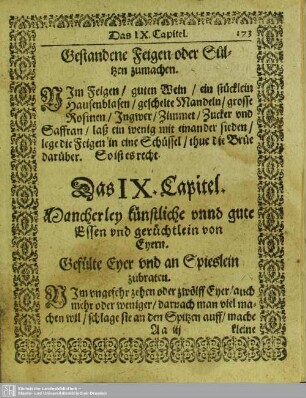 Das IX. Capitel. 173
Gestandene Feigen oder Sül-
tzen zumachen.
NIm Feigen / guten Wein / ein stücklein
Hausenblasen / geschelte Mandeln / grosse
Rosinen / Ingwer / Zimmet / Zucker vnd
Saffran / laß ein wenig mit einander sieden /
lege die Feigen in eine Schüssel / thue die Brüe
darüber. So ist es recht.
Das IX. Capitel.
Mancherley künstliche vnnd gute
Essen vnd gerüchtlein von
Eyern.
Gefülte Eyer vnd an Spieslein
zubraten.
NIm vngefehr zehen oder zwölff Eyer / auch
mehr oder weniger / darnach man viel ma-
chen wil / schlage sie an den Spitzen auff / mache
Aa iij kleine